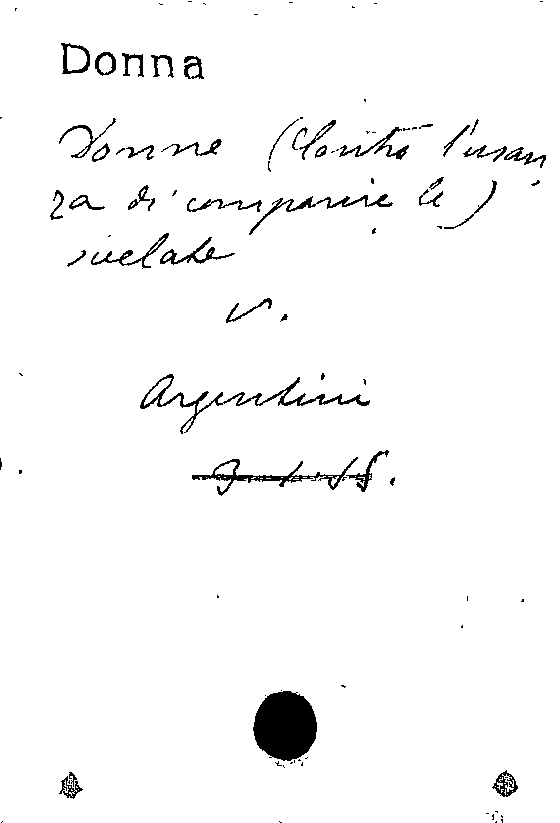 Donna
Donne (Contro l'usan
za di comparire le)
svelate
v.
Argentini